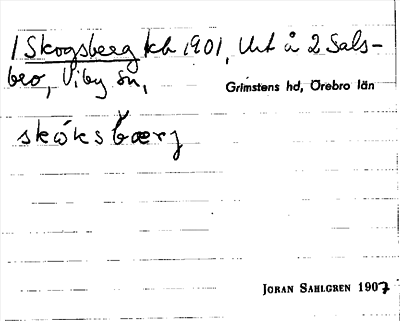 1 Skogsberg kb 1901, Urt å 2 Sals-
bro, Viby sn,
Grimstens hd, Örebro län
skòksbærj
JÖRAN SAHLGREN 1907